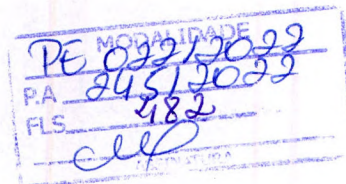 MODALIDADE
PE 022/2022
P.A 245/2022
FLS. 482
ASSINATURA